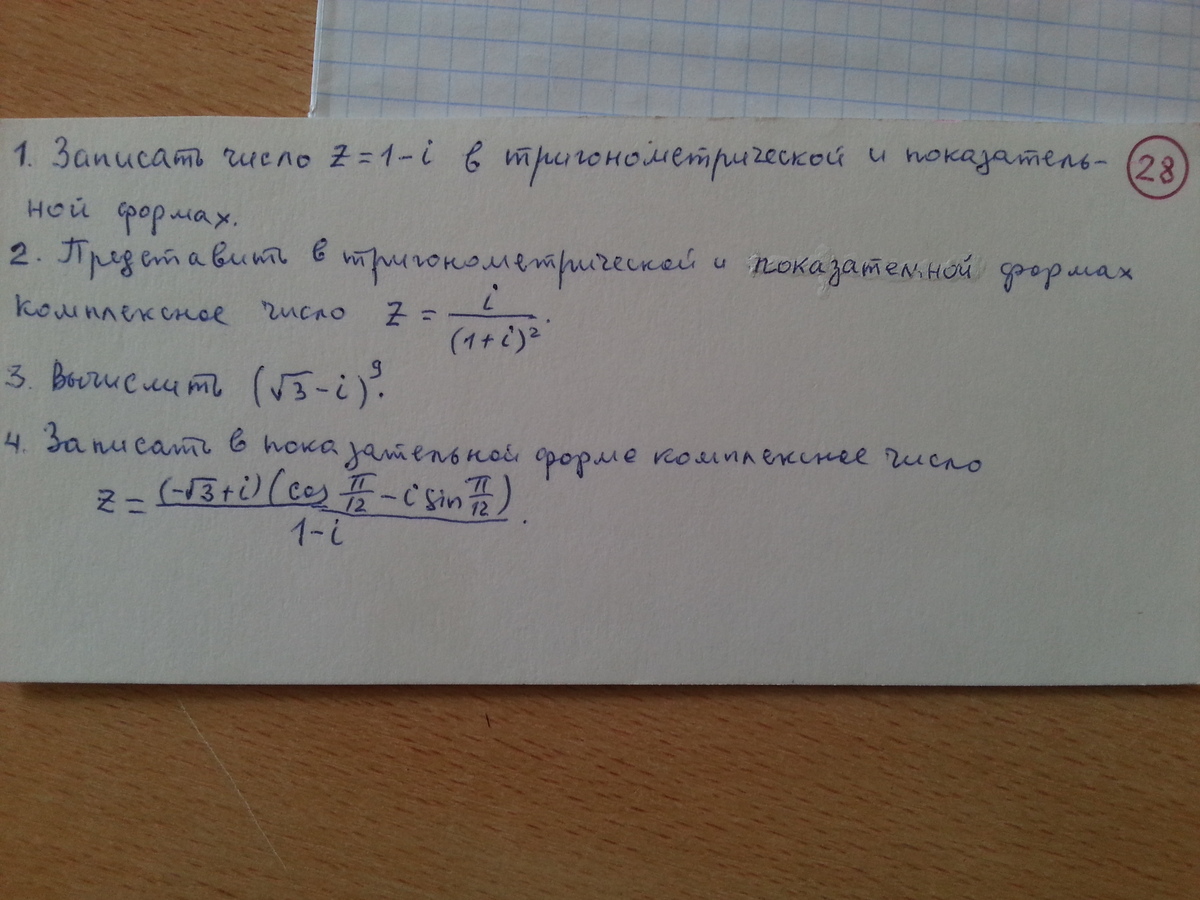 1. Записать число z = 1 - i в тригонометрической и показатель- 28
ной формах.
2. Представить в тригонометрической и показательной формах
комплексное число z = i / (1+i)².
3. Вычислить (√3 - i)⁹.
4. Записать в показательной форме комплексное число
z = (-√3 + i)(cos π/12 - i sin π/12) / 1 - i.